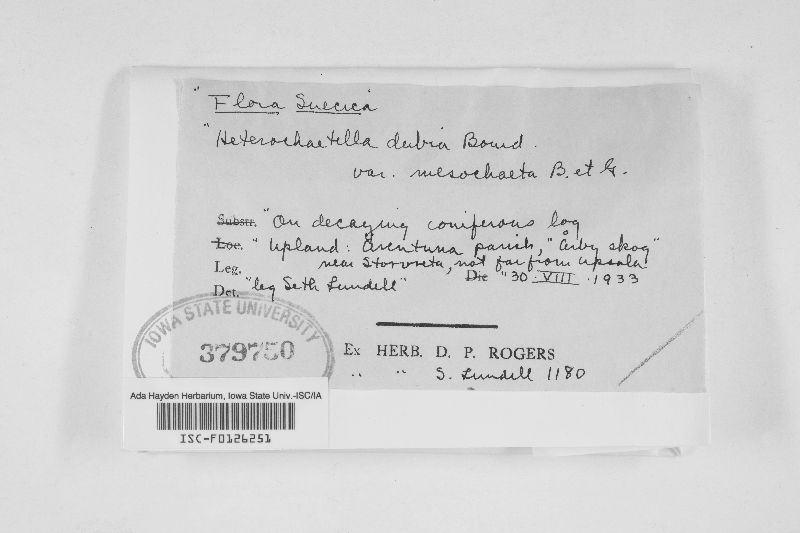 "Flora Suecica"
"Heterochaetella dubia Bourd.
var. mesochaeta B. et G.
Substr. "On decaying coniferous log
Loc. "Upland: Ärentuna parish, "Ärby skog"
Leg. near Storvreta, not far from Upsala
Det. "leg Seth Lundell" Die "30.VIII.1933
IOWA STATE UNIVERSITY
379750
Ex HERB. D. P. ROGERS
" " S. Lundell 1180
Ada Hayden Herbarium, Iowa State Univ.-ISC/IA
ISC-F0126251